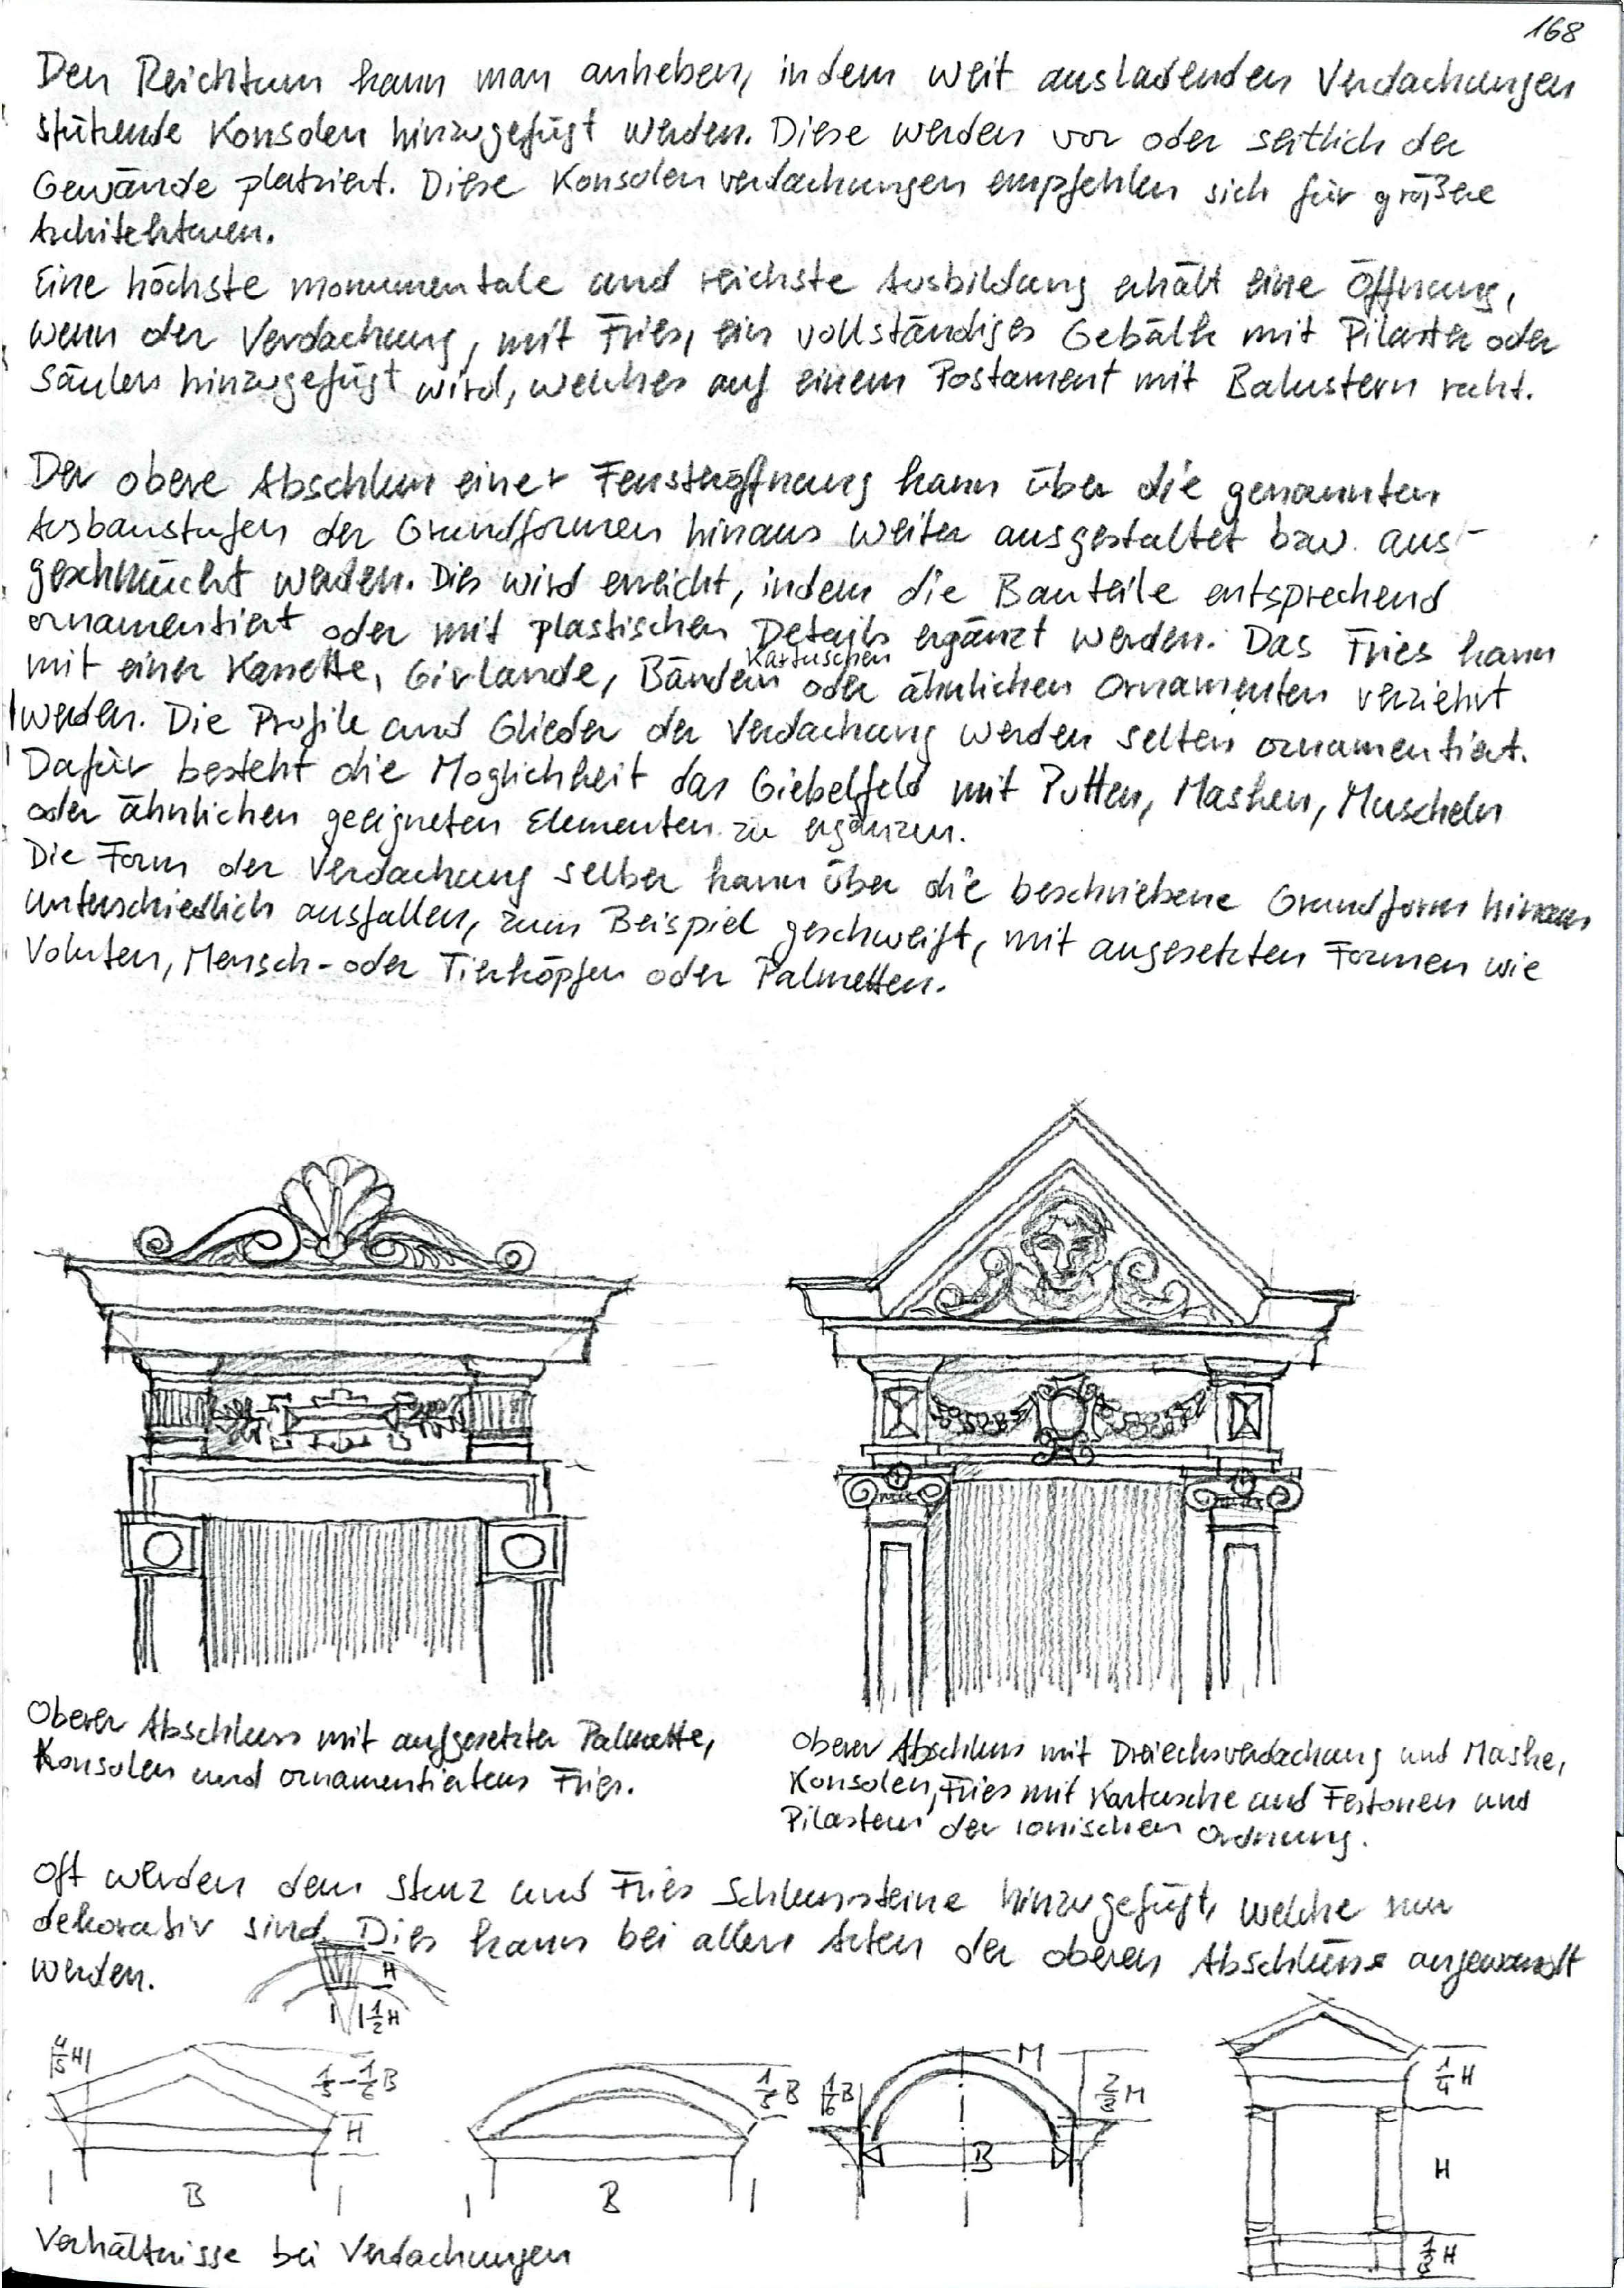 168
Den Reichtum kann man anheben, indem weit ausladenden Verdachungen
stützende Konsolen hinzugefügt werden. Diese werden vor oder seitlich der
Gewände platziert. Diese Konsolenverdachungen empfehlen sich für größere
Architekturen.
Eine höchste monumentale und reichste Ausbildung erhält eine Öffnung,
wenn der Verdachung, mit Fries, ein vollständiges Gebälk mit Pilaster oder
Säulen hinzugefügt wird, welches auf einem Postament mit Balustern ruht.
Der obere Abschluss einer Fensteröffnung kann über die genannten
Ausbaustufen der Grundformen hinaus weiter ausgestaltet bzw. aus-
geschmückt werden. Dies wird erreicht, indem die Bauteile entsprechend
ornamentiert oder mit plastischen Details ergänzt werden. Das Fries kann
Kartuschen
mit einer Girlande, Bändern oder ähnlichen Ornamenten verziehrt
werden. Die Profile und Glieder der Verdachung werden selten ornamentiert.
Dafür besteht die Moglichkeit das Giebelfeld mit Putten, Masken, Muscheln
oder ähnlichen geeigneten Elementen zu ergänzen.
Die Form der Verdachung selber kann über die beschriebene Grundform hinaus
unterschiedlich ausfallen, zum Beispiel geschweift, mit angesetzten Formen wie
Voluten, Mensch- oder Tierköpfen oder Palmetten.
Oberer Abschluss mit aufgesetzter Palmette,
Konsolen und ornamentiertem Fries.
Oberer Abschluss mit Dreiecksverdachung und Maske,
Konsolen, Fries mit Kartusche und Festonen und
Pilastern der ionischen Ordnung.
Oft werden dem Sturz und Fries Schlusssteine hinzugefügt, welche nur
dekorativ sind. Dies kann bei allen Arten der oberen Abschlüsse angewandt
werden.
H
1/2 H
4/5 H
1/5 - 1/6 B
H
B
1/5 B
B
1/6 B
M
2/3 M
B
1/4 H
H
1/3 H
Verhältnisse bei Verdachungen